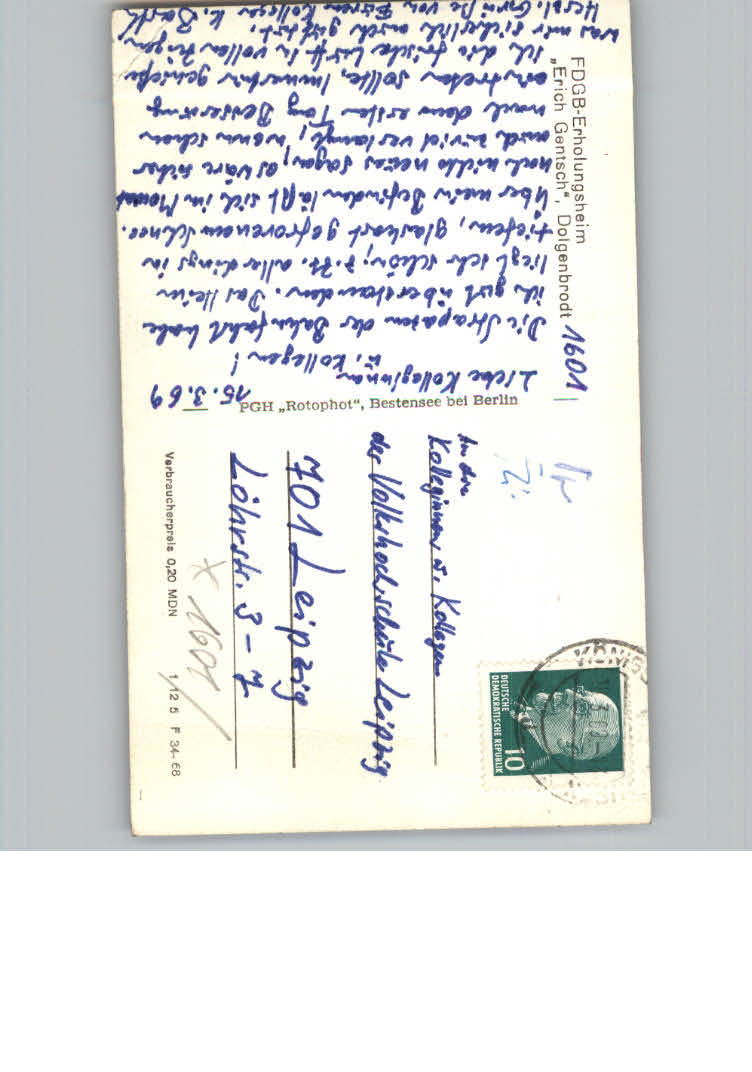 FDGB-Erholungsheim
„Erich Gentsch“, Dolgenbrodt
1601
15.3.69
Liebe Kolleginnen
u. Kollegen!
Die Strapazen der Bahnfahrt habe
ich gut überstanden. Das Heim
liegt sehr schön, z.Zt. allerdings in
tiefem, glashart gefrorenem Schnee.
Über mein Befinden läßt sich im Moment
noch nichts neues sagen, es wäre sicher
auch zuviel verlangt, wenn schon
nach dem ersten Tag Besserung
eintreten sollte. Immerhin genieße
ich die frische Luft in vollen Zügen
was mir sicherlich auch guttut.
Herzl. Grüße von Eurem Kollegen K.
PGH „Rotophot“, Bestensee bei Berlin
An die
Kolleginnen u. Kollegen
der Volkshochschule Leipzig
701 Leipzig
Löhrstr. 3-7
Verbraucherpreis 0,20 MDN 1/12 5 F 34-68
x 1601/
DEUTSCHE
DEMOKRATISCHE REPUBLIK
10